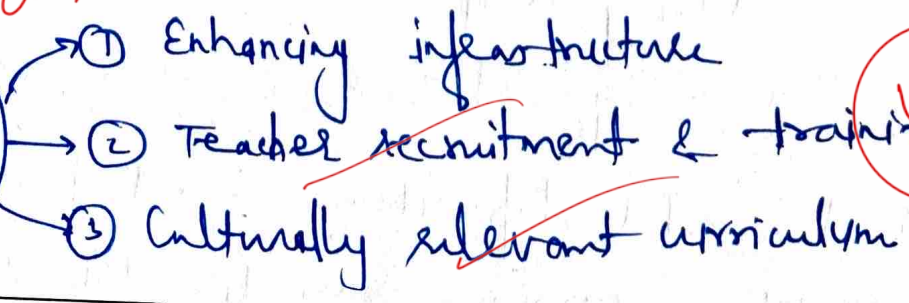 ① Enhancing infrastructure
② Teacher recruitment & traini
③ Culturally relevant curriculum